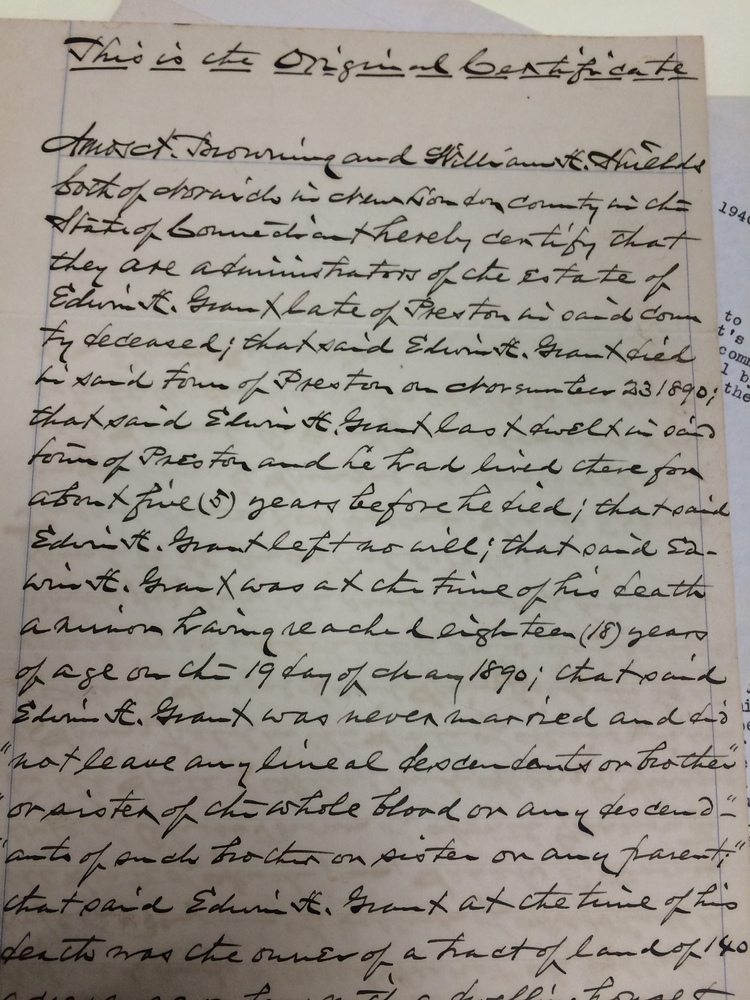 This is the Original Certificate
Amos A. Browning and William H. Shields
both of Norwich in New London county in the
State of Connecticut hereby certify that
they are administrators of the estate of
Edwin H. Grant late of Preston in said coun
ty deceased; that said Edwin H. Grant died
in said town of Preston on November 23 1890;
that said Edwin H. Grant last dwelt in said
town of Preston and he had lived there for
about five (5) years before he died; that said
Edwin H. Grant left no will; that said Ed-
win H. Grant was at the time of his death
a minor having reached eighteen (18) years
of age on the 19 day of May 1890; that said
Edwin H. Grant was never married and did
"not leave any lineal descendants or brother"
"or sister of the whole blood or any descend-"
"ants of such brother or sister or any parent;"
that said Edwin H. Grant at the time of his
death was the owner of a tract of land of 140
dwelling house
1940
to
t's
com
l b
the